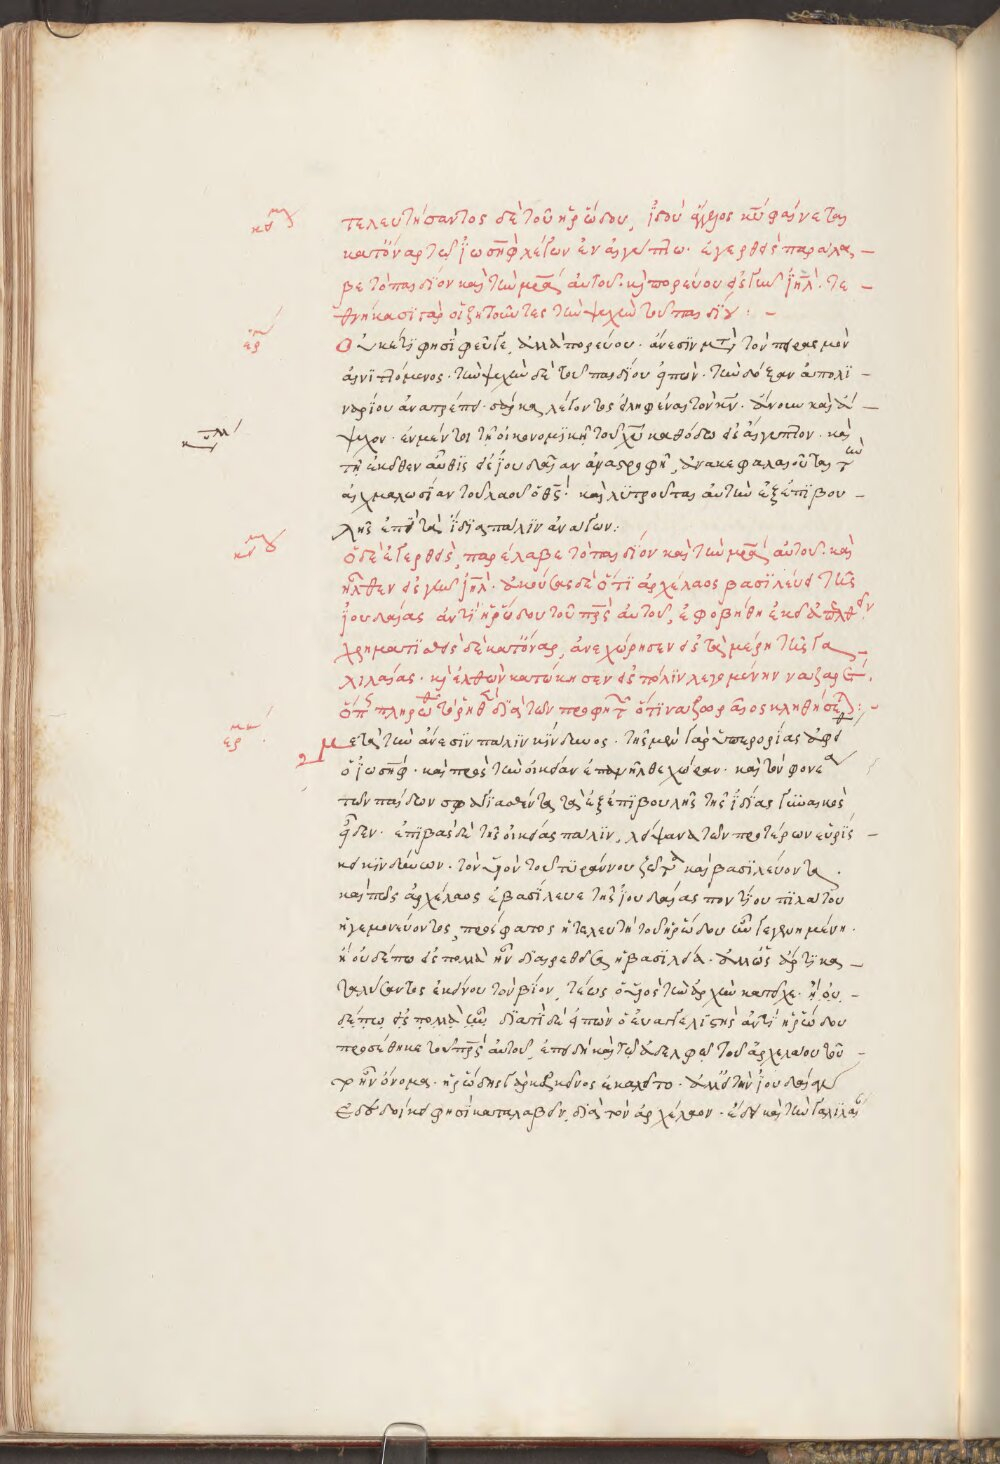 τελευτήσαντος δὲ τοῦ ἡρώδου, ἰδοὺ ἄγγελος κῡ φαίνεται
κατ' ὄναρ τῷ ἰωσὴφ λέγων ἐν αἰγύπτω· ἐγερθεὶς παράλα
βε τὸ παιδίον καὶ τὴν μρ̅α αὐτοῦ· κὶ πορεύου εἰς γῆν ἰη̅λ· τε
θνήκασι γὰρ οἱ ζητοῦντες τὴν ψυχὴν τοῦ παιδίου·
Οὐκέτι φησὶ φεῦγε, ἀλλὰ πορεύου· ἄνεσιν μετὰ τὸν πειρασμὸν
αἰνιττόμενος· τὴν ψυχὴν δὲ τοῦ παιδίου εἰπὼν· τὴν δόξαν ἀπολι
ναρίου ἀνατρέπει· λέγοντος εἰληφέναι τὸν κν̅· ἄνουν καὶ ἄ
ψυχον· ἐν μέντοι τῇ οἰκονομικῇ τοῦ χῡ καθόδω εἰς αἴγυπτον· καὶ
τῇ ἐκεῖθεν αὖθις εἰς ἰουδαίαν ἀναστροφῇ, ἀνακεφαλαιοῦται τὴν
αἰχμαλωσίαν τοῦ λαοῦ ὁ θς̅· καὶ λυτροῦται αὐτὴν ἐξ ἐπιβου
λῆς ἐπὶ τὰ ἴδια πάλιν ἀνάγων:
Ὁ δὲ ἐγερθεὶς, παρέλαβε τὸ παιδίον καὶ τὴν μρ̅α αὐτοῦ· καὶ
ἦλθεν εἰς γῆν ἰη̅λ· ἀκούσας δὲ ὅτι ἀρχέλαος βασιλεύει τῆς
ἰουδαίας ἀντὶ ἡρώδου τοῦ πρ̅ς αὐτοῦ, ἐφοβήθη ἐκεῖ ἀπελθεῖν
χρηματισθεὶς δὲ κατ' ὄναρ, ἀνεχώρησεν εἰς τὰ μέρη τῆς γα
λιλαίας· κὶ ἐλθὼν κατώκησεν εἰς πόλιν λεγομένην ναζαρέτ·
Ὅπως πληρωθῇ τὸ ῥηθὲν διὰ τῶν προφητῶν ὅτι ναζωραῖος κληθήσεται:
Μετὰ τὴν ἄνεσιν πάλιν κίνδυνος· τῆς μὲν γὰρ ὑπερορίας ἀφεῖ
ὁ ἰωσὴφ· καὶ πρὸς τὴν οἰκείαν ἐπανῆλθε χώραν· καὶ τὸν φονέα
τῶν παίδων σφαδιασθέντα τὰ ἐξ ἐπιβουλῆς τῆς ἰδίας γυναικὸς
εἶδεν· ἐπιβὰς δὲ τῆς οἰκείας πάλιν, λείψανα τῶν προτέρων εὑρίσ
κει κινδύνων· τὸν υἱὸν τοῦ τυράννου ζῶντα καὶ βασιλεύοντα·
καὶ πῶς ἀρχέλαος ἐβασίλευε τῆς ἰουδαίας ποντίου πιλάτου
ἡγεμονεύοντος, πρόσφατος ἡ τελευτὴ τοῦ ἡρώδου ἦν γεγενημένη·
ἢ οὐδέπω εἰς πολλὰ ἦν διαιρεθεῖσα ἡ βασιλεία· ἀλλ' ὡς ἄρτι κα
ταλύσαντος ἐκείνου τὸν βίον, τέως ὁ υἱὸς τὴν ἀρχὴν κατεῖχε· ἢ οὐ
δέπω εἰς πολλὰ ἦν διατὶ δὲ εἰπὼν ὁ εὐαγγελιστὴς ἀντὶ ἡρώδου
προσέθηκε τοῦ πρ̅ς αὐτοῦ, ἐπειδὴ καὶ τῷ ἀδελφῷ τοῦ ἀρχελάου τοῦ
ἦν ὄνομα· ἡρώδης γὰρ κἀκεῖνος ἐκαλεῖτο· ἀλλ' εἰ τὴν ἰουδαίαν
ἐδεδοίκει φησὶ καταλαβεῖν, διὰ τὸν ἀρχέλαον· ἔδει καὶ τὴν γαλιλαίαν